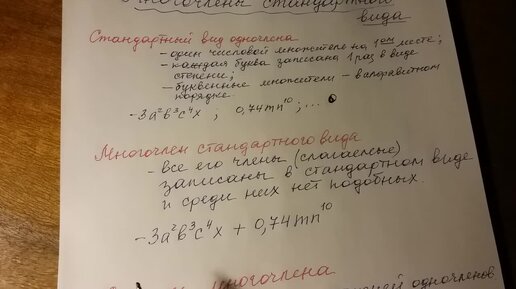 Многочлены стандартного
вида
Стандартный вид одночлена
- один числовой множитель на 1ом месте;
- каждая буква записана 1 раз в виде
степени;
- буквенные множители - в алфавитном
порядке.
-3a²b³c⁴x , 0,74mn¹⁰ ; ...
Многочлен стандартного вида
- все его члены (слагаемые)
записаны в стандартном виде
и среди них нет подобных.
-3a²b³c⁴x + 0,74mn¹⁰
многочлена
одночленов